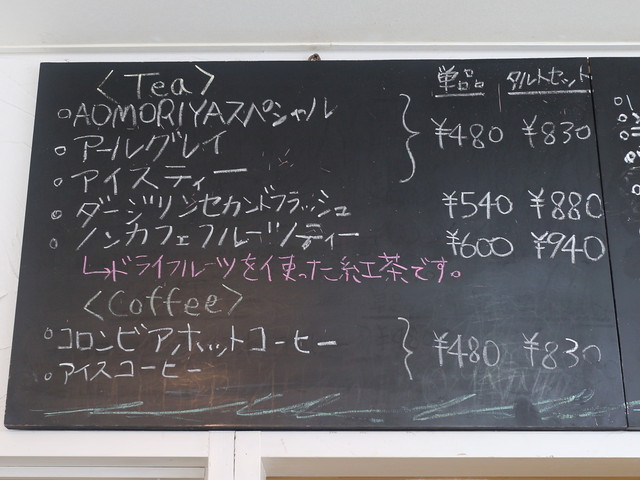 <Tea> 単品 タルトセット
○AOMORIYAスペシャル
○アールグレイ ¥480 ¥830
○アイスティー
○ダージリンセカンドフラッシュ ¥540 ¥880
○ノンカフェフルーツティー ¥600 ¥940
↳ドライフルーツを使った紅茶です。
<Coffee>
○コロンビアホットコーヒー ¥480 ¥830
○アイスコーヒー